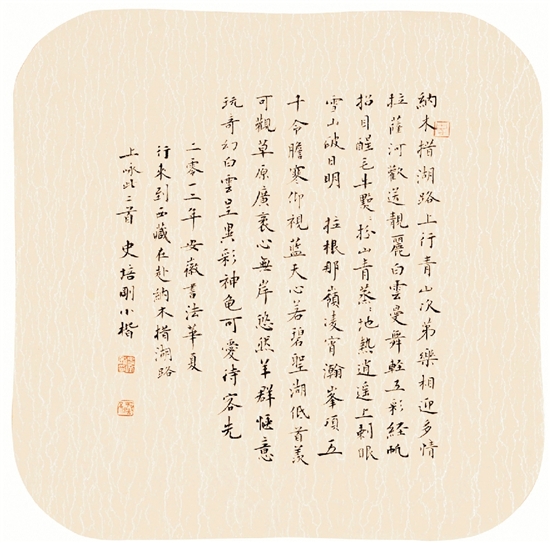 納木措湖路上行青山次第樂相迎多情
拉薩河歡送靚麗白雲曼舞輕五彩經帆
招目醒毛牛山青蒸〻地熱逍遥上刺眼
雪山破日明 拉根那嶺凌霄瀚峯頂五
千令膽寒仰視藍天心若碧聖湖低首羨
可觀草原廣袤心無岸悠然羊群愜意
玩奇幻白雲呈異彩神龟可愛待客先
二零一二年安徽書法華夏
行來到西藏在赴納木措湖路
上咏此二首 史培剛小楷